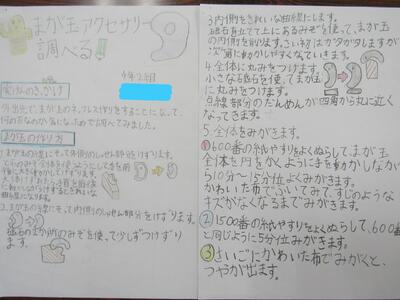 まが玉アクセサリー
調べる
4年2組
実けんのきっかけ
外出先で、まが玉のネックレス作りをすることになって、
何の石なのか気になったので調べてみました。
まが玉の作り方
1.まが玉の線にそって外側のしゃせん部分をけずります。
2.まが玉の線にそって内側のしゃせん部分をけずります。
砥石のまが所のみぞを使って少しずつけずり
ます。
3.内側をきれいな曲線にします。
砥石を立てて上にあるみぞを使って、まが玉
の内側を削ります。さいしょはガタガタしますが
次第に動かしやすくなていきます。
4.全体に丸みをつけます。
小さな砥石を使って、まが玉
に丸みをつけます。
点線部分のだんめんが四角から丸に近く
なってきます。
5.全体をみがきます。
①600番の紙やすりをよくぬらして、まが玉
全体を円をかくように手を動かしなが
ら10分〜15分位よくみがきます。
かわいた布でふいてみて、すじのような
キズがなくなるまでみがきます。
②1500番の紙やすりをよくぬらして、600番
と同じように5分位みがきます。
③さいごにかわいた布でみがくと、
つやが出ます。